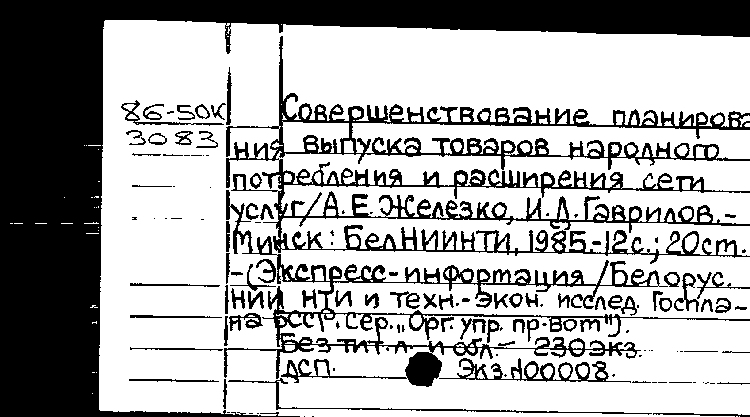 86-50К
3083
Совершенствование планирова
ния выпуска товаров народного
потребления и расширения сети
услуг/А.Е.Железко, И.Д.Гаврилов.-
Минск: БелНИИНТИ, 1985.-12с.; 20см.
-(Экспресс-информация/Белорус.
НИИ НТИ и техн.-экон. исслед. Госпла-
на БССР. Сер. „Орг. упр. пр-вом").
Без тит.л. и обл.- 230экз.
ДСП. Экз.N00008.